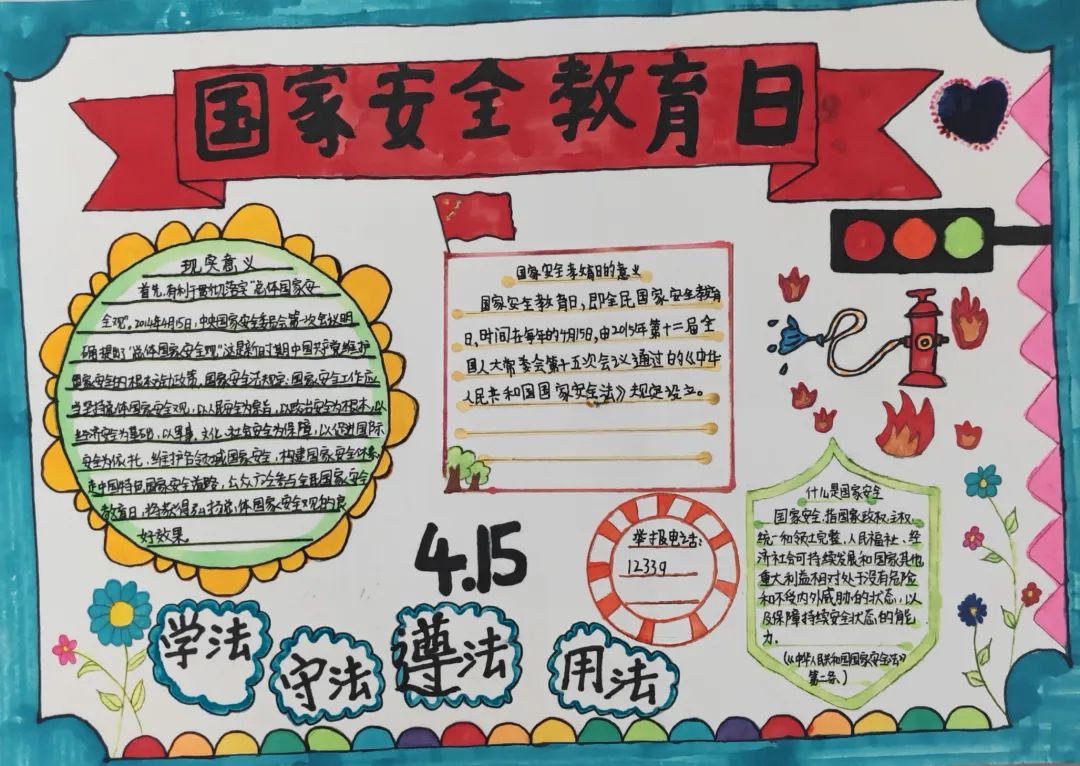 国家安全教育日
现实意义
首先,有利于贯彻落实“总体国家安
全观”,2014年4月15日,中央国家安全委员会第一次会议明
确提出了“总体国家安全观”这是新时期中国共产党维护
国家安全的根本方针政策,国家安全法规定:国家安全工作应
当坚持总体国家安全观,以人民安全为宗旨,以政治安全为根本,以
经济安全为基础,以军事、文化、社会安全为保障,以促进国际
安全为依托,维护各领域国家安全,构建国家安全体系,
走中国特色国家安全道路,
教育日,
好效果。
国家安全教育日的意义
国家安全教育日,即全民国家安全教育
日,时间在每年的4月15日,由2015年第十二届全
国人大常委会第十五次会议通过的《中华
人民共和国国家安全法》规定设立。
4.15
举报电话:
12339
什么是国家安全
国家安全,指国家政权、主权、
统一和领土完整、人民福祉、经
济社会可持续发展和国家其他
重大利益相对处于没有危险
和不受内外威胁的状态,以
及保障持续安全状态的能
力。
(《中华人民共和国国家安全法》
第二条)
学法
守法
遵法
用法